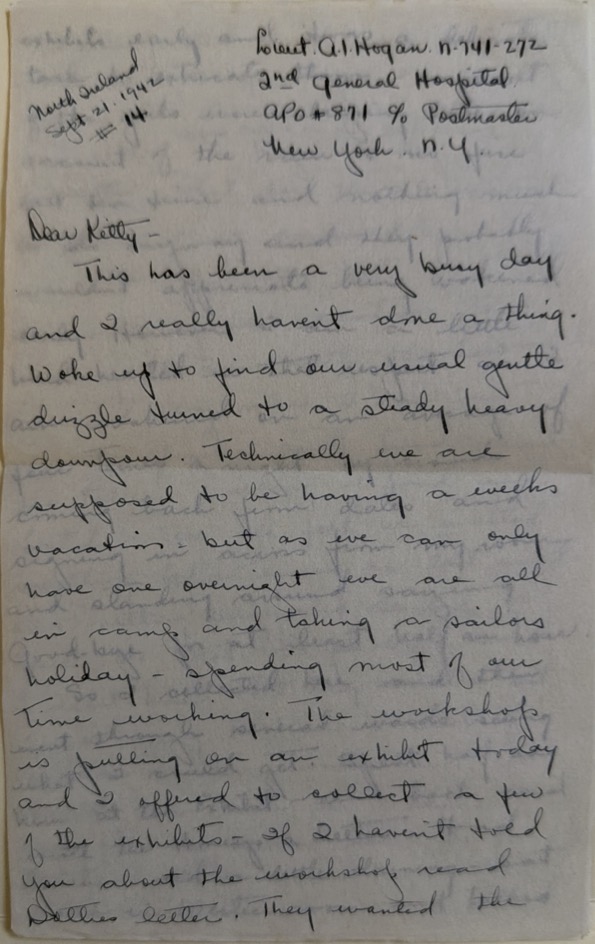 North Ireland
Sept 21. 1942
# 14
Lieut. A.I. Hogan. N-741-272
2nd General Hospital
APO # 871 % Postmaster
New York. N.Y.
Dear Kitty -
This has been a very busy day
and I really haven't done a thing.
Woke up to find our usual gentle
drizzle turned to a steady heavy
downpour. Technically we are
supposed to be having a weeks
vacation - but as we can only
have one overnight we are all
in camp and taking a sailors
holiday - spending most of our
time working. The workshop
is putting on an exhibit today
and I offered to collect a few
of the exhibits - If I haven't told
you about the workshop read
Dotties letter. They wanted the